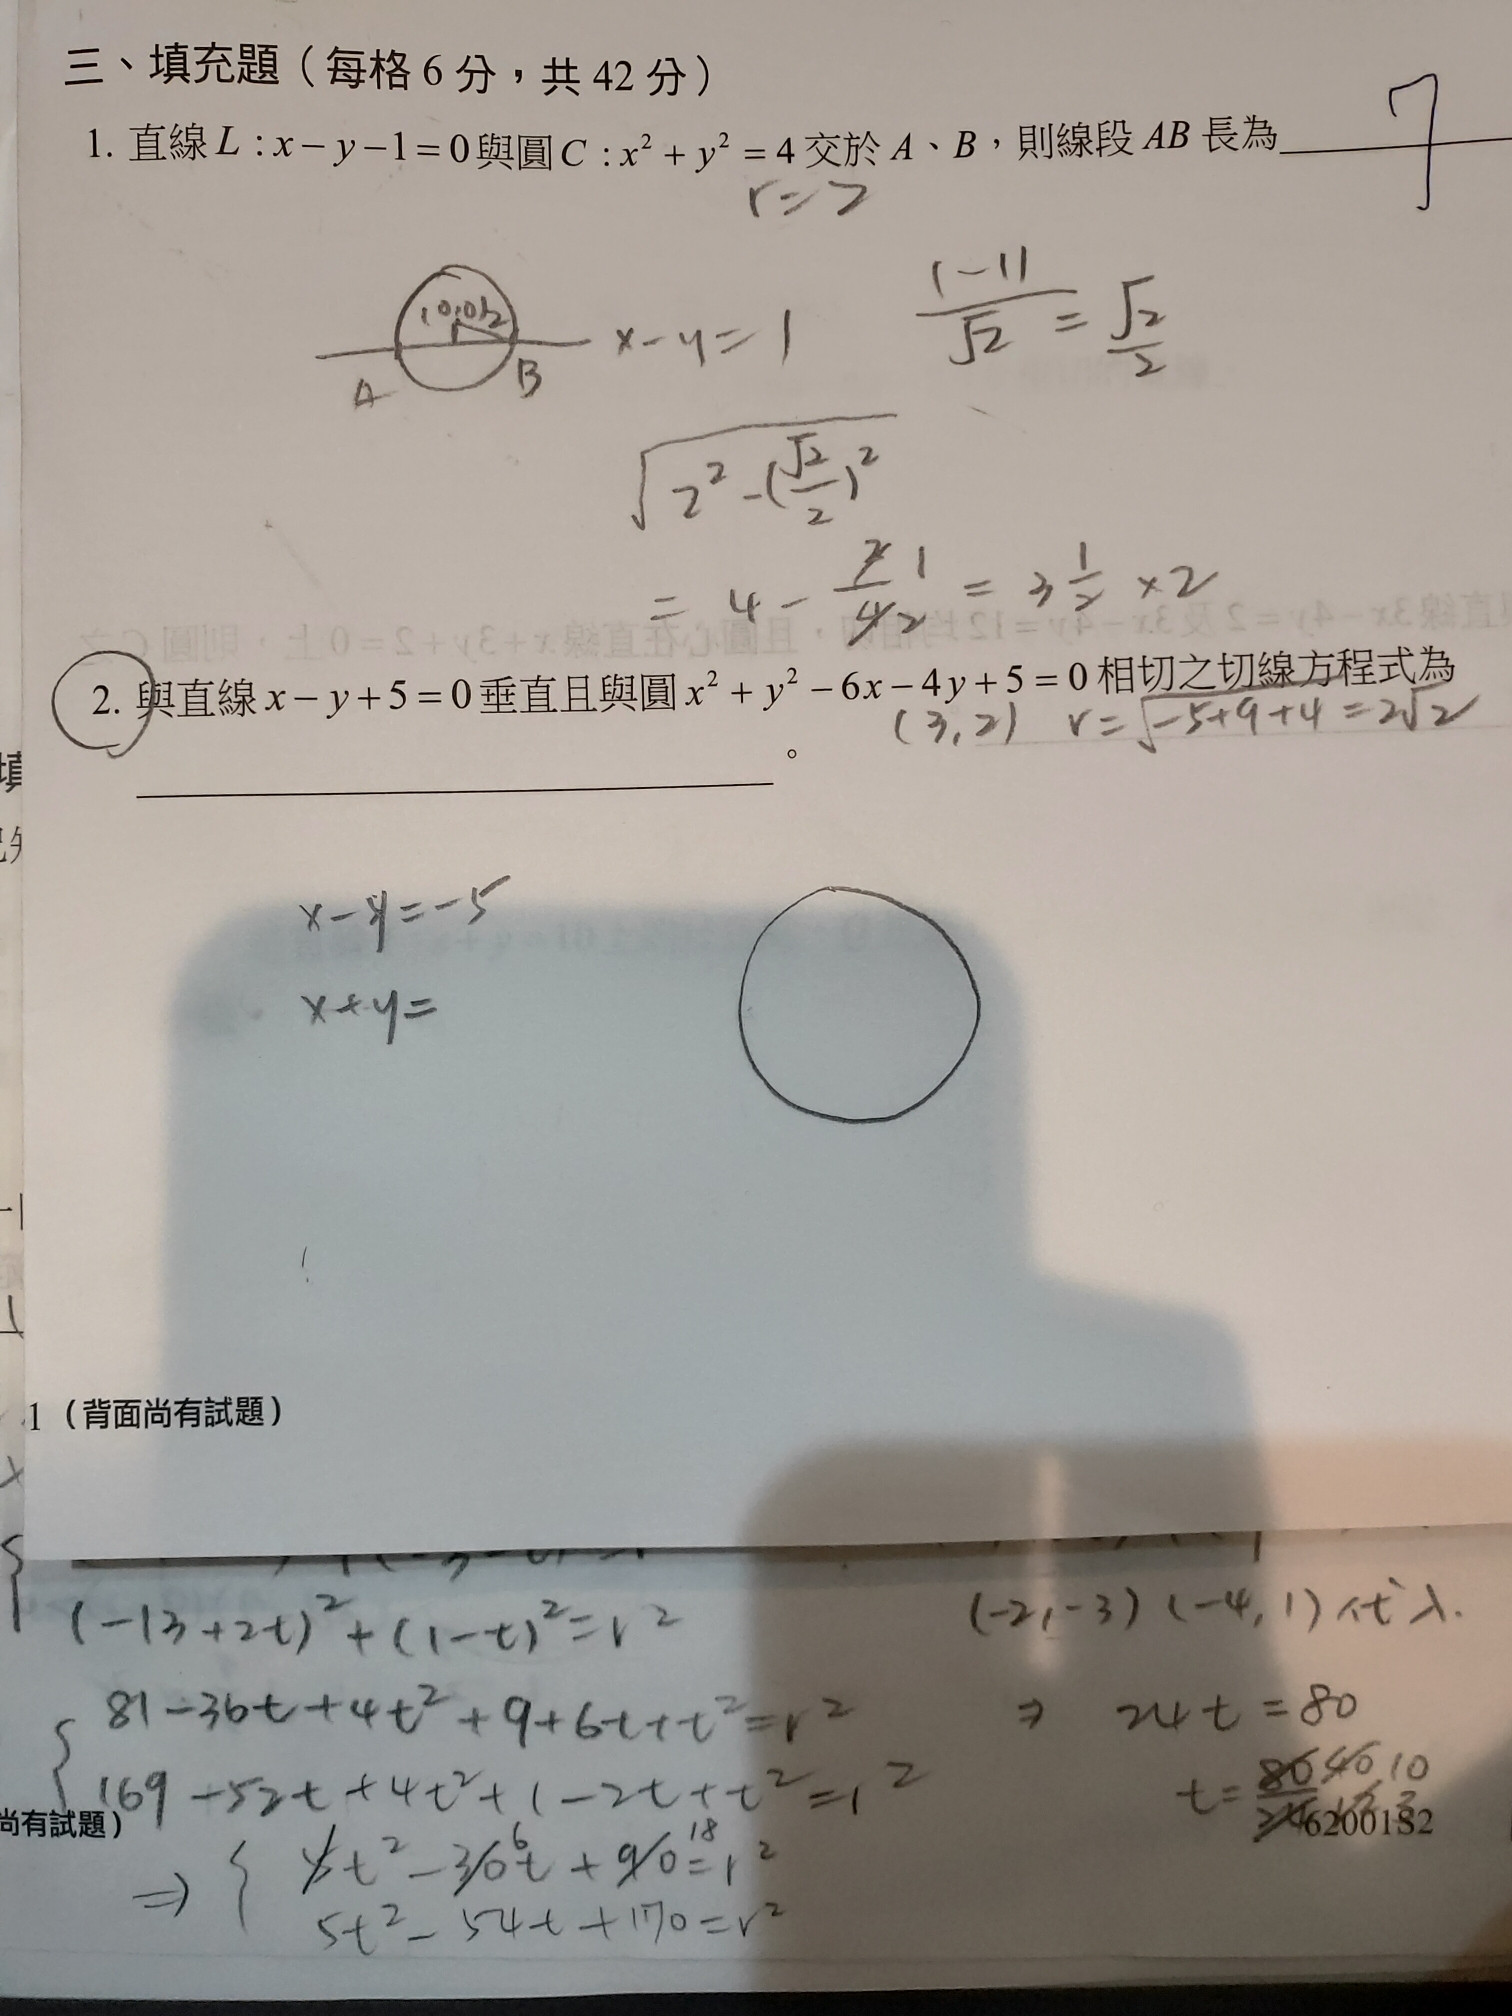 三、填充題（每格6分，共42分）
1. 直線L：x－y－1＝0與圓C：x²＋y²＝4交於A、B，則線段AB長為 7
r=2
(0,0) 2
x-y=1
|-1|/√2 = √2/2
A
B
√(2²-(√2/2)²)
= 4 - 2/4 1/2 = 3 1/2 ×2
2. 與直線x－y＋5＝0垂直且與圓x²＋y²－6x－4y＋5＝0相切之切線方程式為
(3,2) r=√(-5+9+4)=2√2
。
x-y=-5
x+y=
1（背面尚有試題）
(-13+2t)²+(1-t)²=r²
(-2,-3) (-4,1) 代入.
81-36t+4t²+9+6t+t²=r²
⇒ 24t=80
169-52t+4t²+1-2t+t²=r²
t= 80/24 40/12 10/3
尚有試題）
6200182
5t²-30t 6+90 18=r²
⇒ 5t²-54t+170=r²